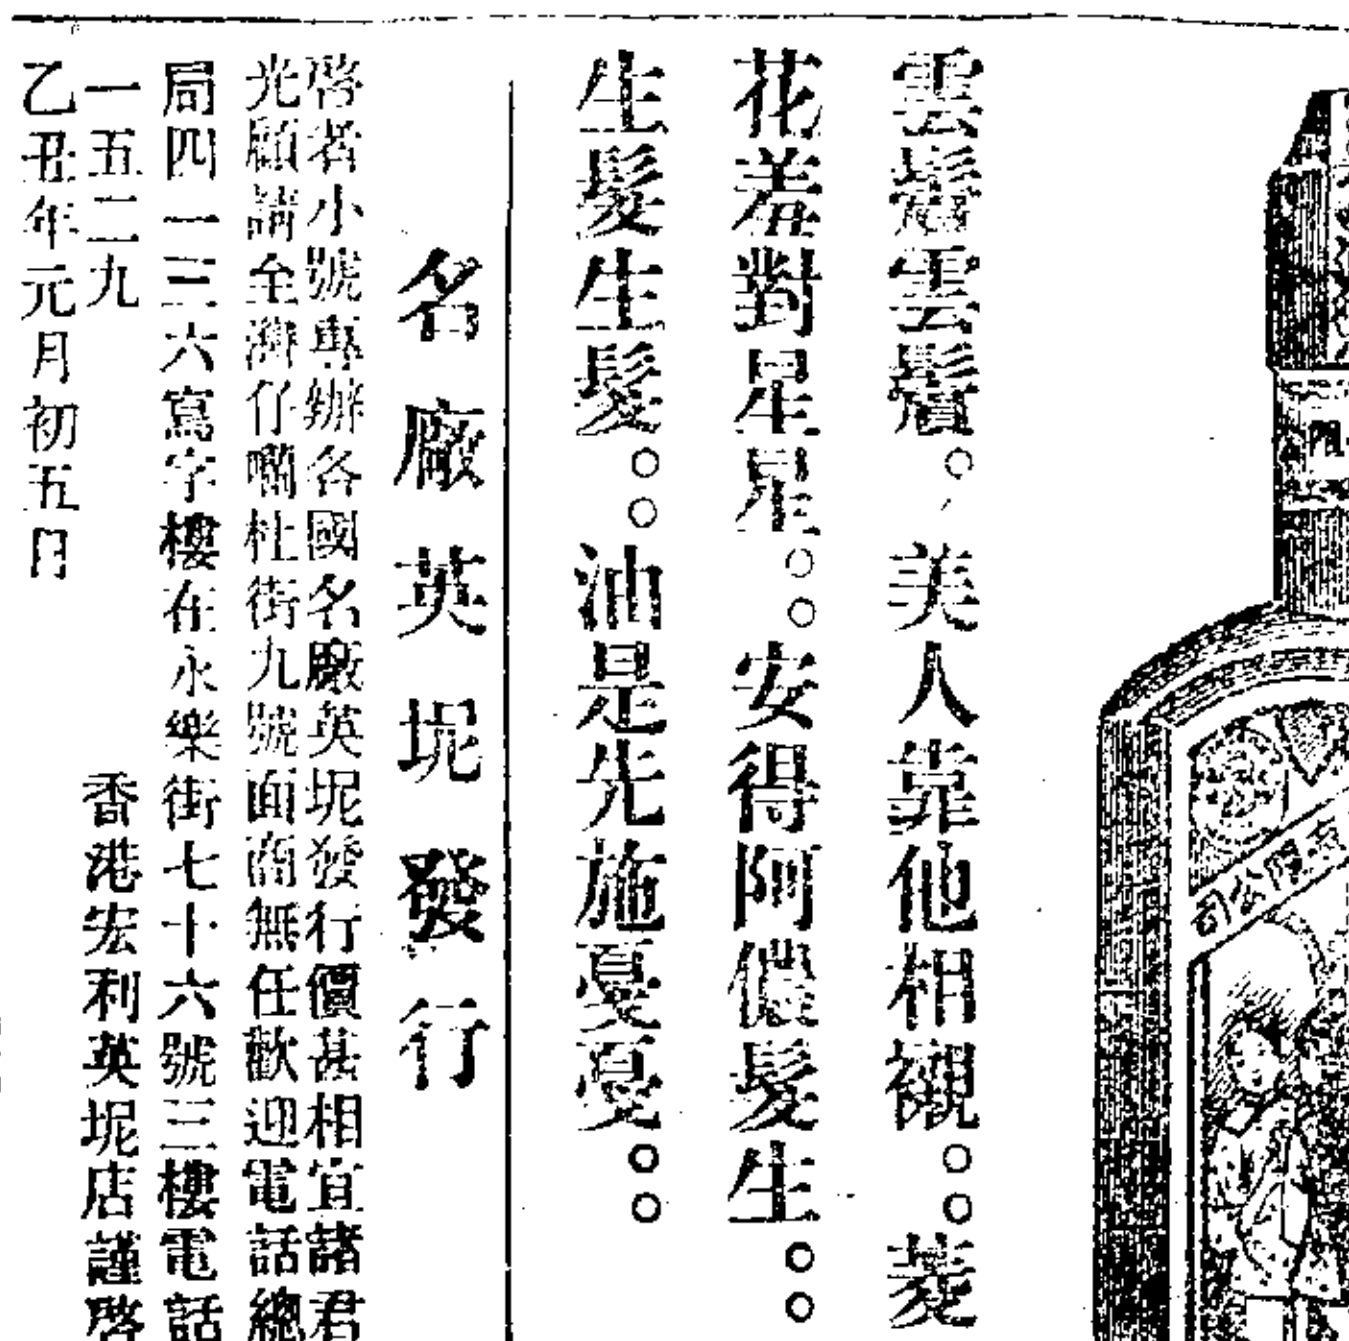 限公司
雲鬟雲鬢。美人靠他相襯。。菱
花羞對星星。。安得阿儂髮生。。
生髮生髮。。油是先施戞戞。。
名廠英坭發行
啓者小號專辦各國名廠英坭發行價甚相宜諸君
光顧請至灣仔囒杜街九號面商無任歡迎電話總
局四一三六寫字樓在永樂街七十六號三樓電話
一五二九 香港宏利英坭店謹啓
乙丑年元月初五日